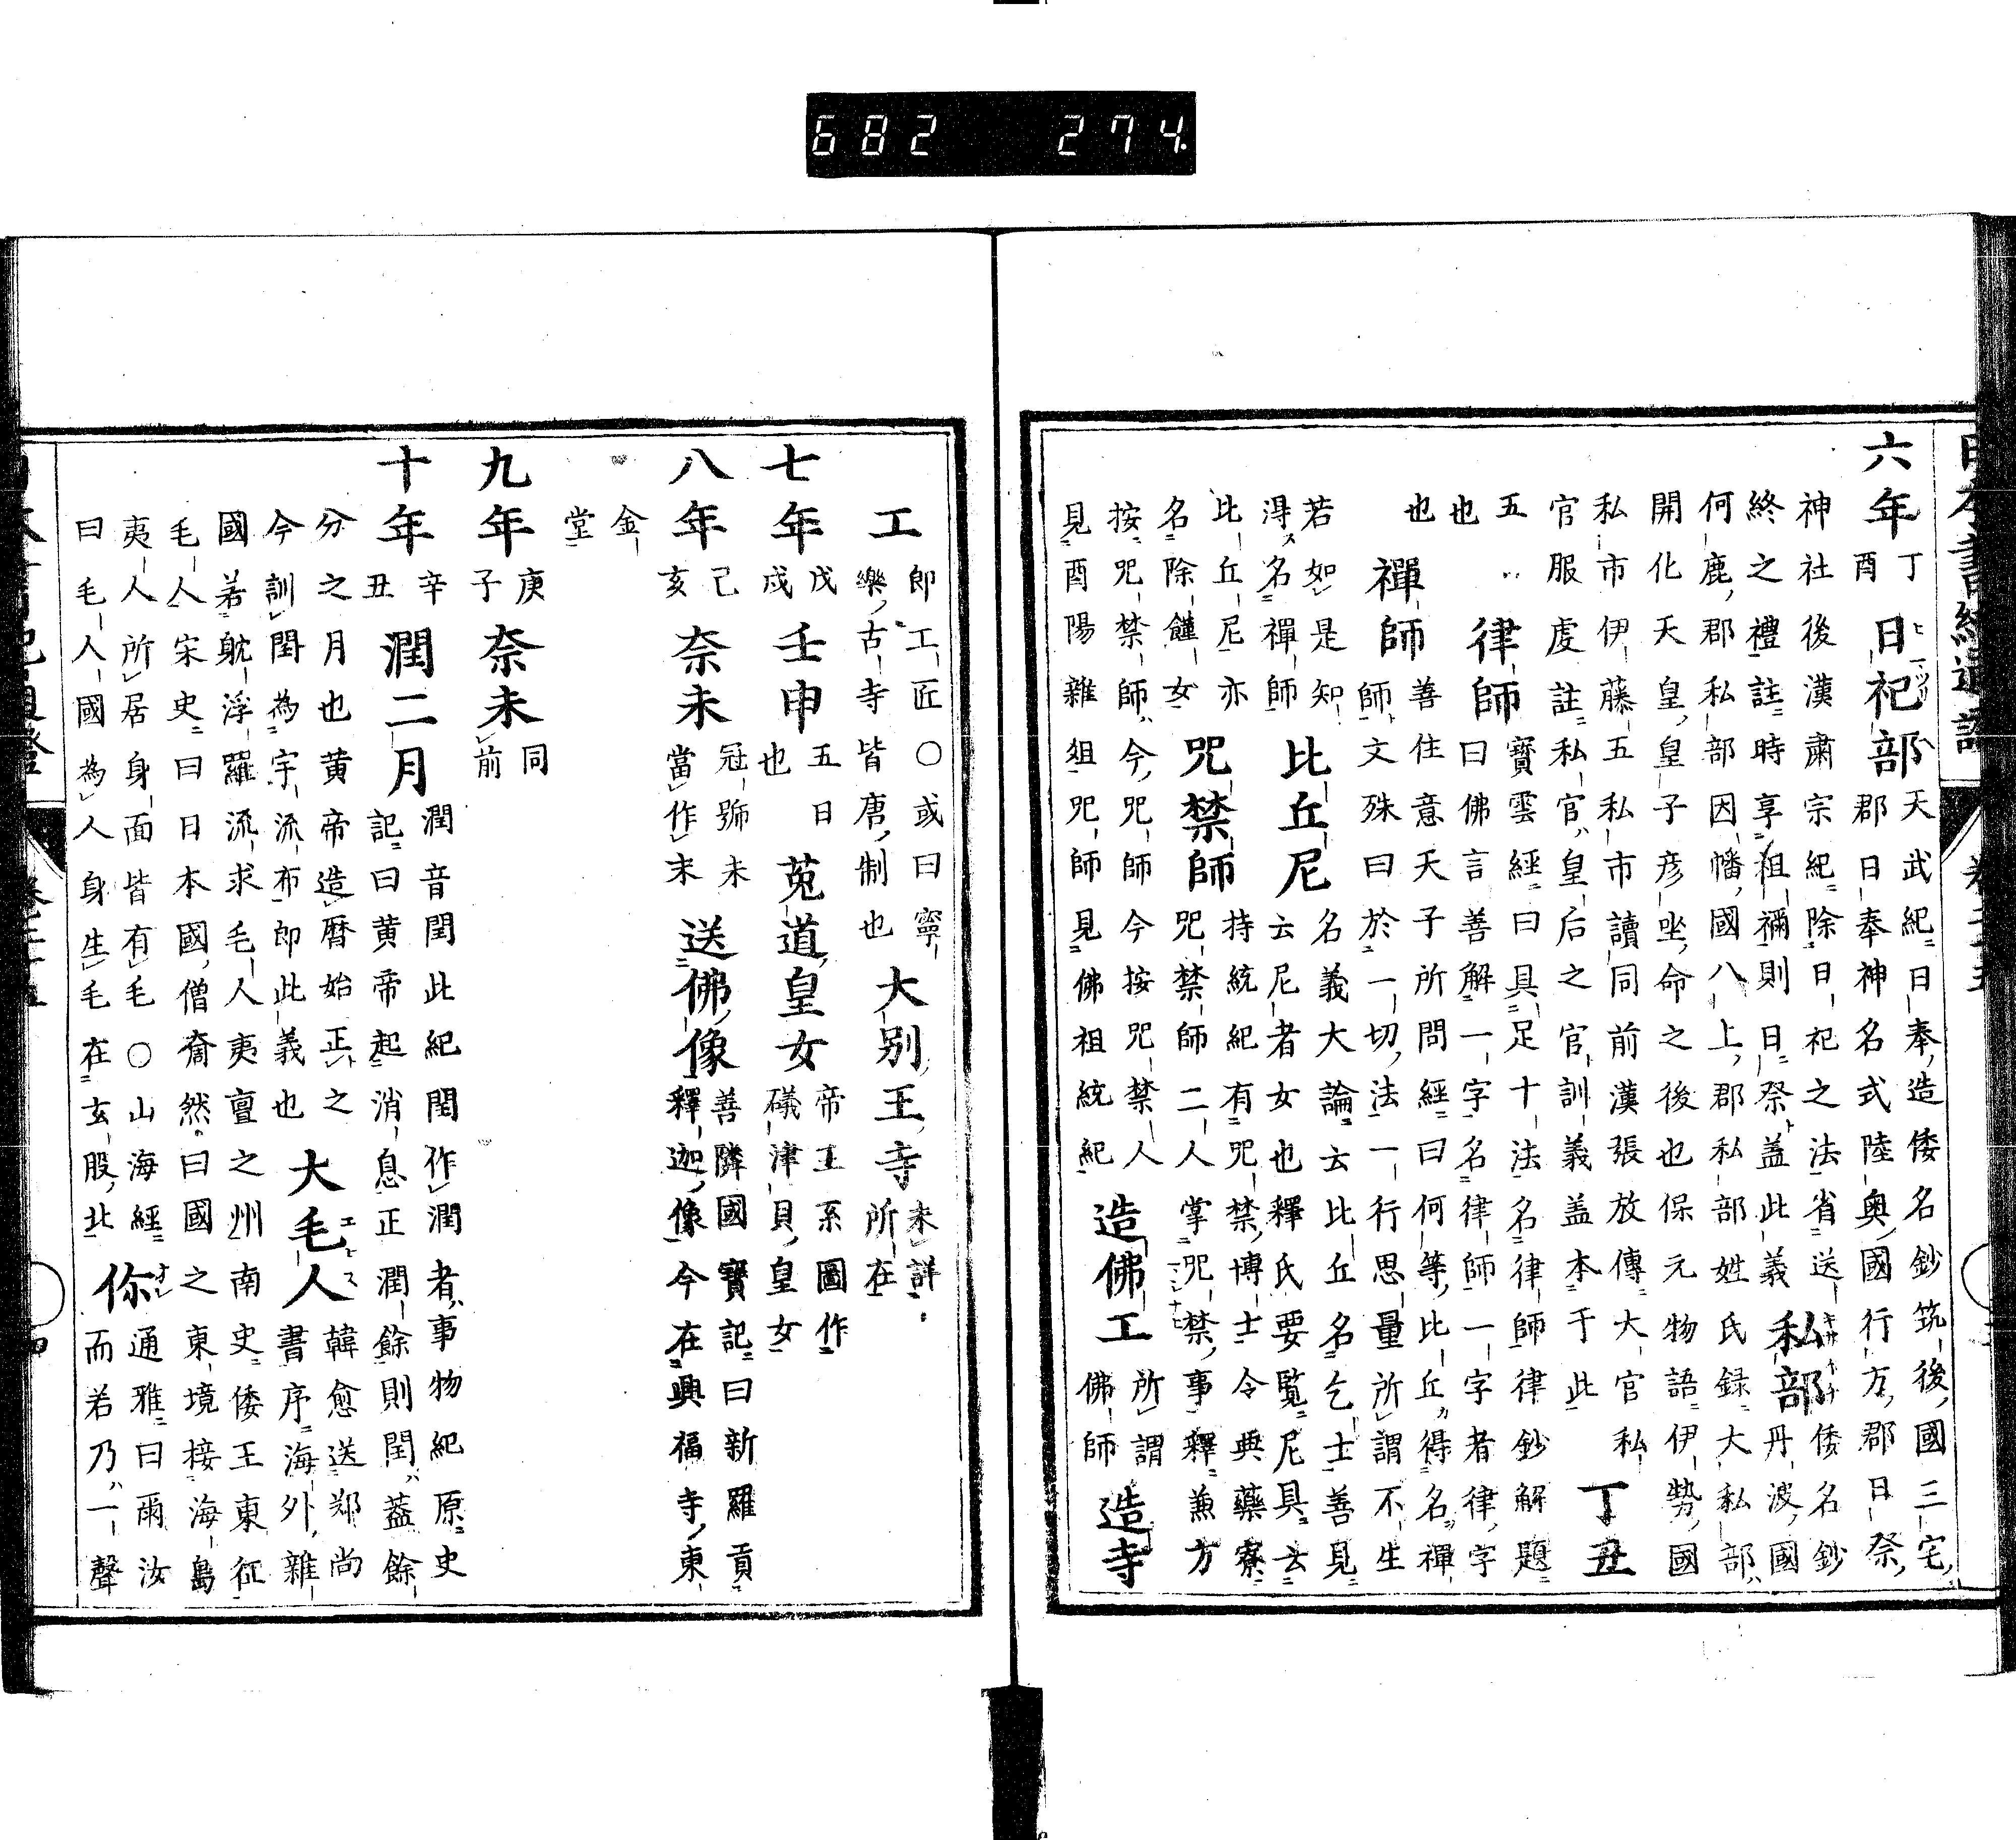 六年丁酉日祀部天武紀日奉造倭名鈔筑後國三宅郡日奉神名式陸奥國行方郡日祭
神社後漢肅宗紀除日祀之法省送終之禮註時享祖禰則日祭盖此義私部倭名鈔丹波國
何鹿郡私部因幡國八上郡私部姓氏録大私部開化天皇皇子彦坐命之後也保元物語伊勢國
私市伊藤五私市讀同前漢張放傳大官私官服虔註私官皇后之官訓義盖本于此丁丑
五也律師寶雲經曰具足十法名律師律鈔解題曰佛言善解一字名律師一字者律字
也禪師善住意天子所問經曰何等比丘得名禪師文殊曰於一切法一行思量所謂不生
若如是知得名禪師比丘尼名義大論云比丘名乞士善見云尼者女也釋氏要覧尼具云
比丘尼亦名除饉女咒禁師持統紀有咒禁博士令典藥寮咒禁師二人掌咒禁事釋兼方
按咒禁師今咒師今按咒禁人見酉陽雜俎咒師見佛祖統紀造佛工所謂佛師造寺
工即工匠○或曰寧樂古寺皆唐制也大别王寺未詳所在
七年戊戌壬申五日也菟道皇女帝王系圖作礒津貝皇女
八年己亥奈未冠號未當作末送佛像善隣國寶記曰新羅貢釋迦像今在興福寺東
金堂
九年庚子奈未同前
十年辛丑潤二月潤音閏此紀閏作潤者事物紀原史記曰黄帝起消息正潤餘則閏蓋餘
分之月也黄帝造暦始正之今訓閏為宇流布即此義也大毛人韓愈送鄭尚書序海外雜
國若躭浮羅流求毛人夷亶之州南史倭王東征毛人宋史曰日本國僧奝然曰國之東境接海島
夷人所居身面皆有毛○山海經曰毛人國為人身生毛在玄股北你通雅曰爾汝而若乃一聲
682 274